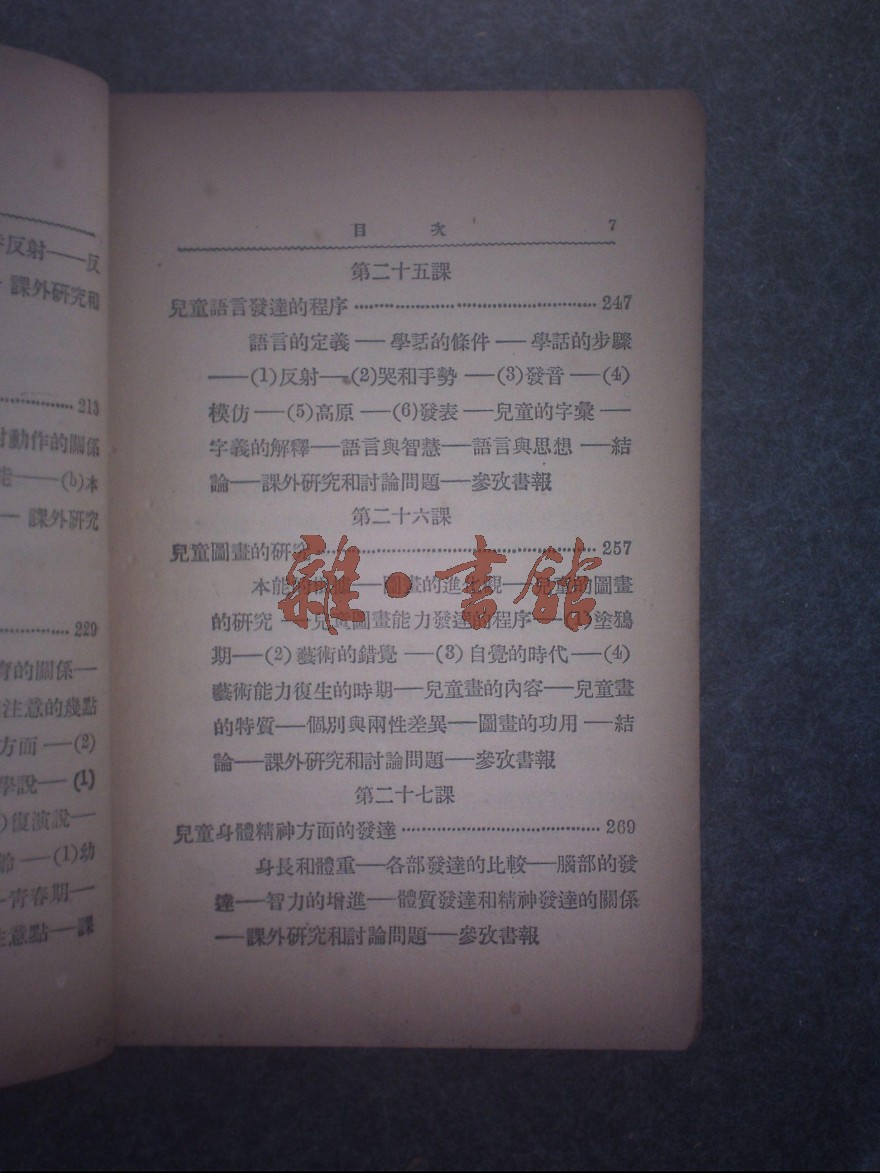 反射——反
課外研究和
213
動作的關係
——(b)本
— 課外研究
229
育的關係—
注意的幾點
方面—(2)
學說—(1)
)復演說—
齡—(1)幼
—青春期—
注意點—課
目 次 7
第二十五課
兒童語言發達的程序……………………………247
語言的定義—學話的條件—學話的步驟
——(1)反射—(2)哭和手勢—(3)發音—(4)
模仿—(5)高原—(6)發表—兒童的字彙—
字義的解釋—語言與智慧—語言與思想—結
論—課外研究和討論問題—參攷書報
第二十六課
兒童圖畫的研究……………………………257
本能的 —圖畫的進化觀—兒童的圖畫
的研究—兒童圖畫能力發達的程序—(1)塗鴉
期—(2)藝術的錯覺—(3)自覺的時代—(4)
藝術能力復生的時期—兒童畫的內容—兒童畫
的特質—個別與兩性差異—圖畫的功用—結
論—課外研究和討論問題—參攷書報
第二十七課
兒童身體精神方面的發達……………………269
身長和體重—各部發達的比較—腦部的發
達—智力的增進—體質發達和精神發達的關係
—課外研究和討論問題—參攷書報
雜·書館